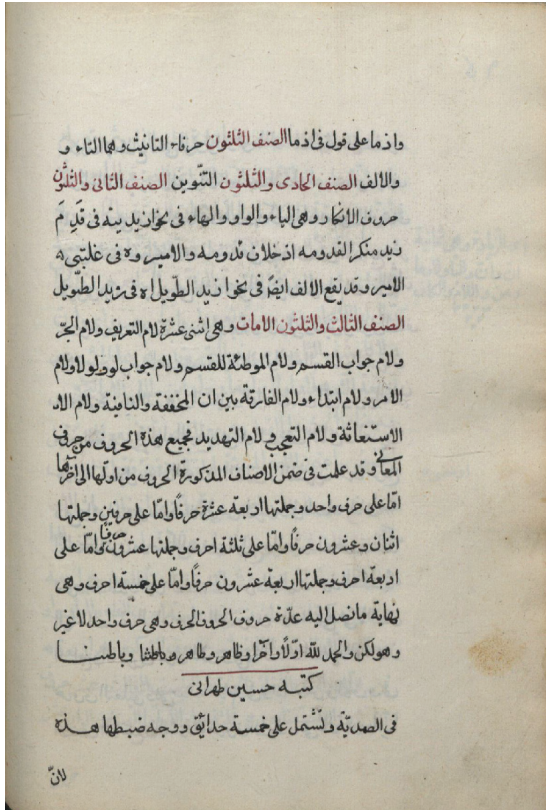 واذما على قول فى اذما الصنف الثلثون حرفاء التانيث وهما التاء و
والالف الصنف الحادى والثلثون التنوين الصنف الثانى والثلثون
حروف الانكار وهى الياء والواو والهاء فى نحو ازيدينه فى قدم
زيد منكرا لقدومه او خلاف قدومه والاميروه فى غلبنى
الامير وقد يقع الالف ايضا فى نحو ازيد الطويلاه فى زيد الطويل
الصنف الثالث والثلثون الامات وهى اثنى عشرة لام التعريف ولام الجر
ولام جواب القسم ولام الموطئة للقسم ولام جواب لو ولولا ولام
الامر ولام ابتداء ولام الفارقة بين ان المخففة والنافية ولام
الاستغاثة ولام التعجب ولام التهديد فجميع هذه الحروف من حرفى
المعانى وقد علمت فى ضمن الاصناف المذكورة الحروف من اولها الى اخرها
امّا على حرف واحد وجملتها اربعة عشرة حرفًا وامّا على حرفين وجملتها
اثنان وعشرون حرفًا وامّا على ثلثة احرف وجملتها عشرون حرفا وامّا على
اربعة احرف وجملتها اربعة عشرون حرفًا وامّا على خمسة احرف وهى
نهاية ما تصل اليه عدّة حروف الحروف الحرف وهى حرف واحد لا غير
وهو لكن والحمد لله اوّلًا واخرًا وظاهر وظاهر وباطنا وباطنا
كتبه حسين طهرانى
فى الصمديّة وتشتمل على خمسة حدائق ووجه ضبطها هذه
لانّ